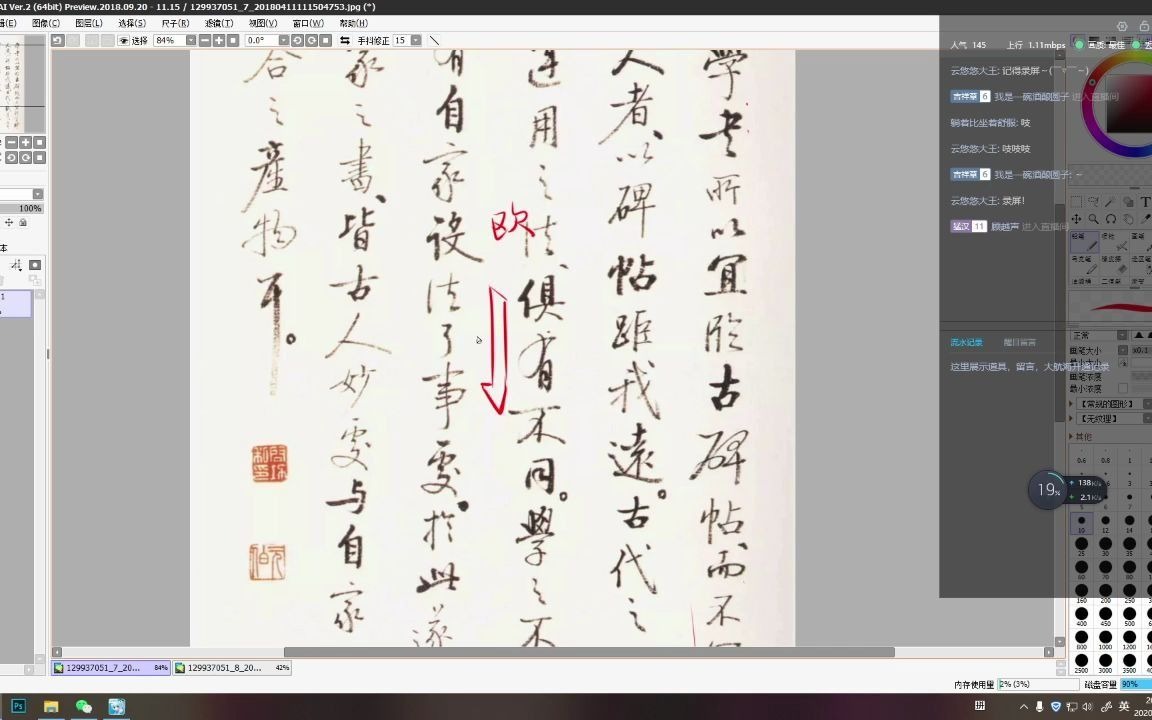 AI Ver.2 (64bit) Preview.2018.09.20 - 11.15 / 129937051_7_20180411111504753.jpg (*)
图像(C) 图层(L) 选择(S) 尺子(R) 滤镜(T) 视图(V) 窗口(W) 帮助(H)
选择 84% 0.0° 手抖修正 15
100%
學书所以宜临古碑帖、而不
人者、以碑帖距我遠。古代之
运用之法、俱有不同。學之不
有自家设法了事处、於此遂
家之書、皆古人妙处与自家
合之產物耳。
欧
人气 145 上行 1.11mbps 画质: 最佳
云悠悠大王: 记得录屏~
吉祥草 6 我是一碗酒酿圆子 进入直播间
躺着比坐着舒服: 吱
云悠悠大王: 吱吱吱
吉祥草 6 我是一碗酒酿圆子: ~
云悠悠大王: 录屏!
猛汉 11 顾越声 进入直播间
流水记录 醒目留言
这里展示道具，留言，大航海开通记录
正常
画笔大小 x0.1
最小大小
画笔浓度
最小浓度
【常规的图形】
【无纹理】
其他
19% 138K/s
2.1K/s
0.6 0.8 1
10 12 14
25 30 35
60 70 80
160 200 250
400 450 500
800 1000 1200
2500 3000 3500
129937051_7_20... 84% 129937051_8_20... 42%
内存使用量 2% (3%) 磁盘容量 90%
Ps 英